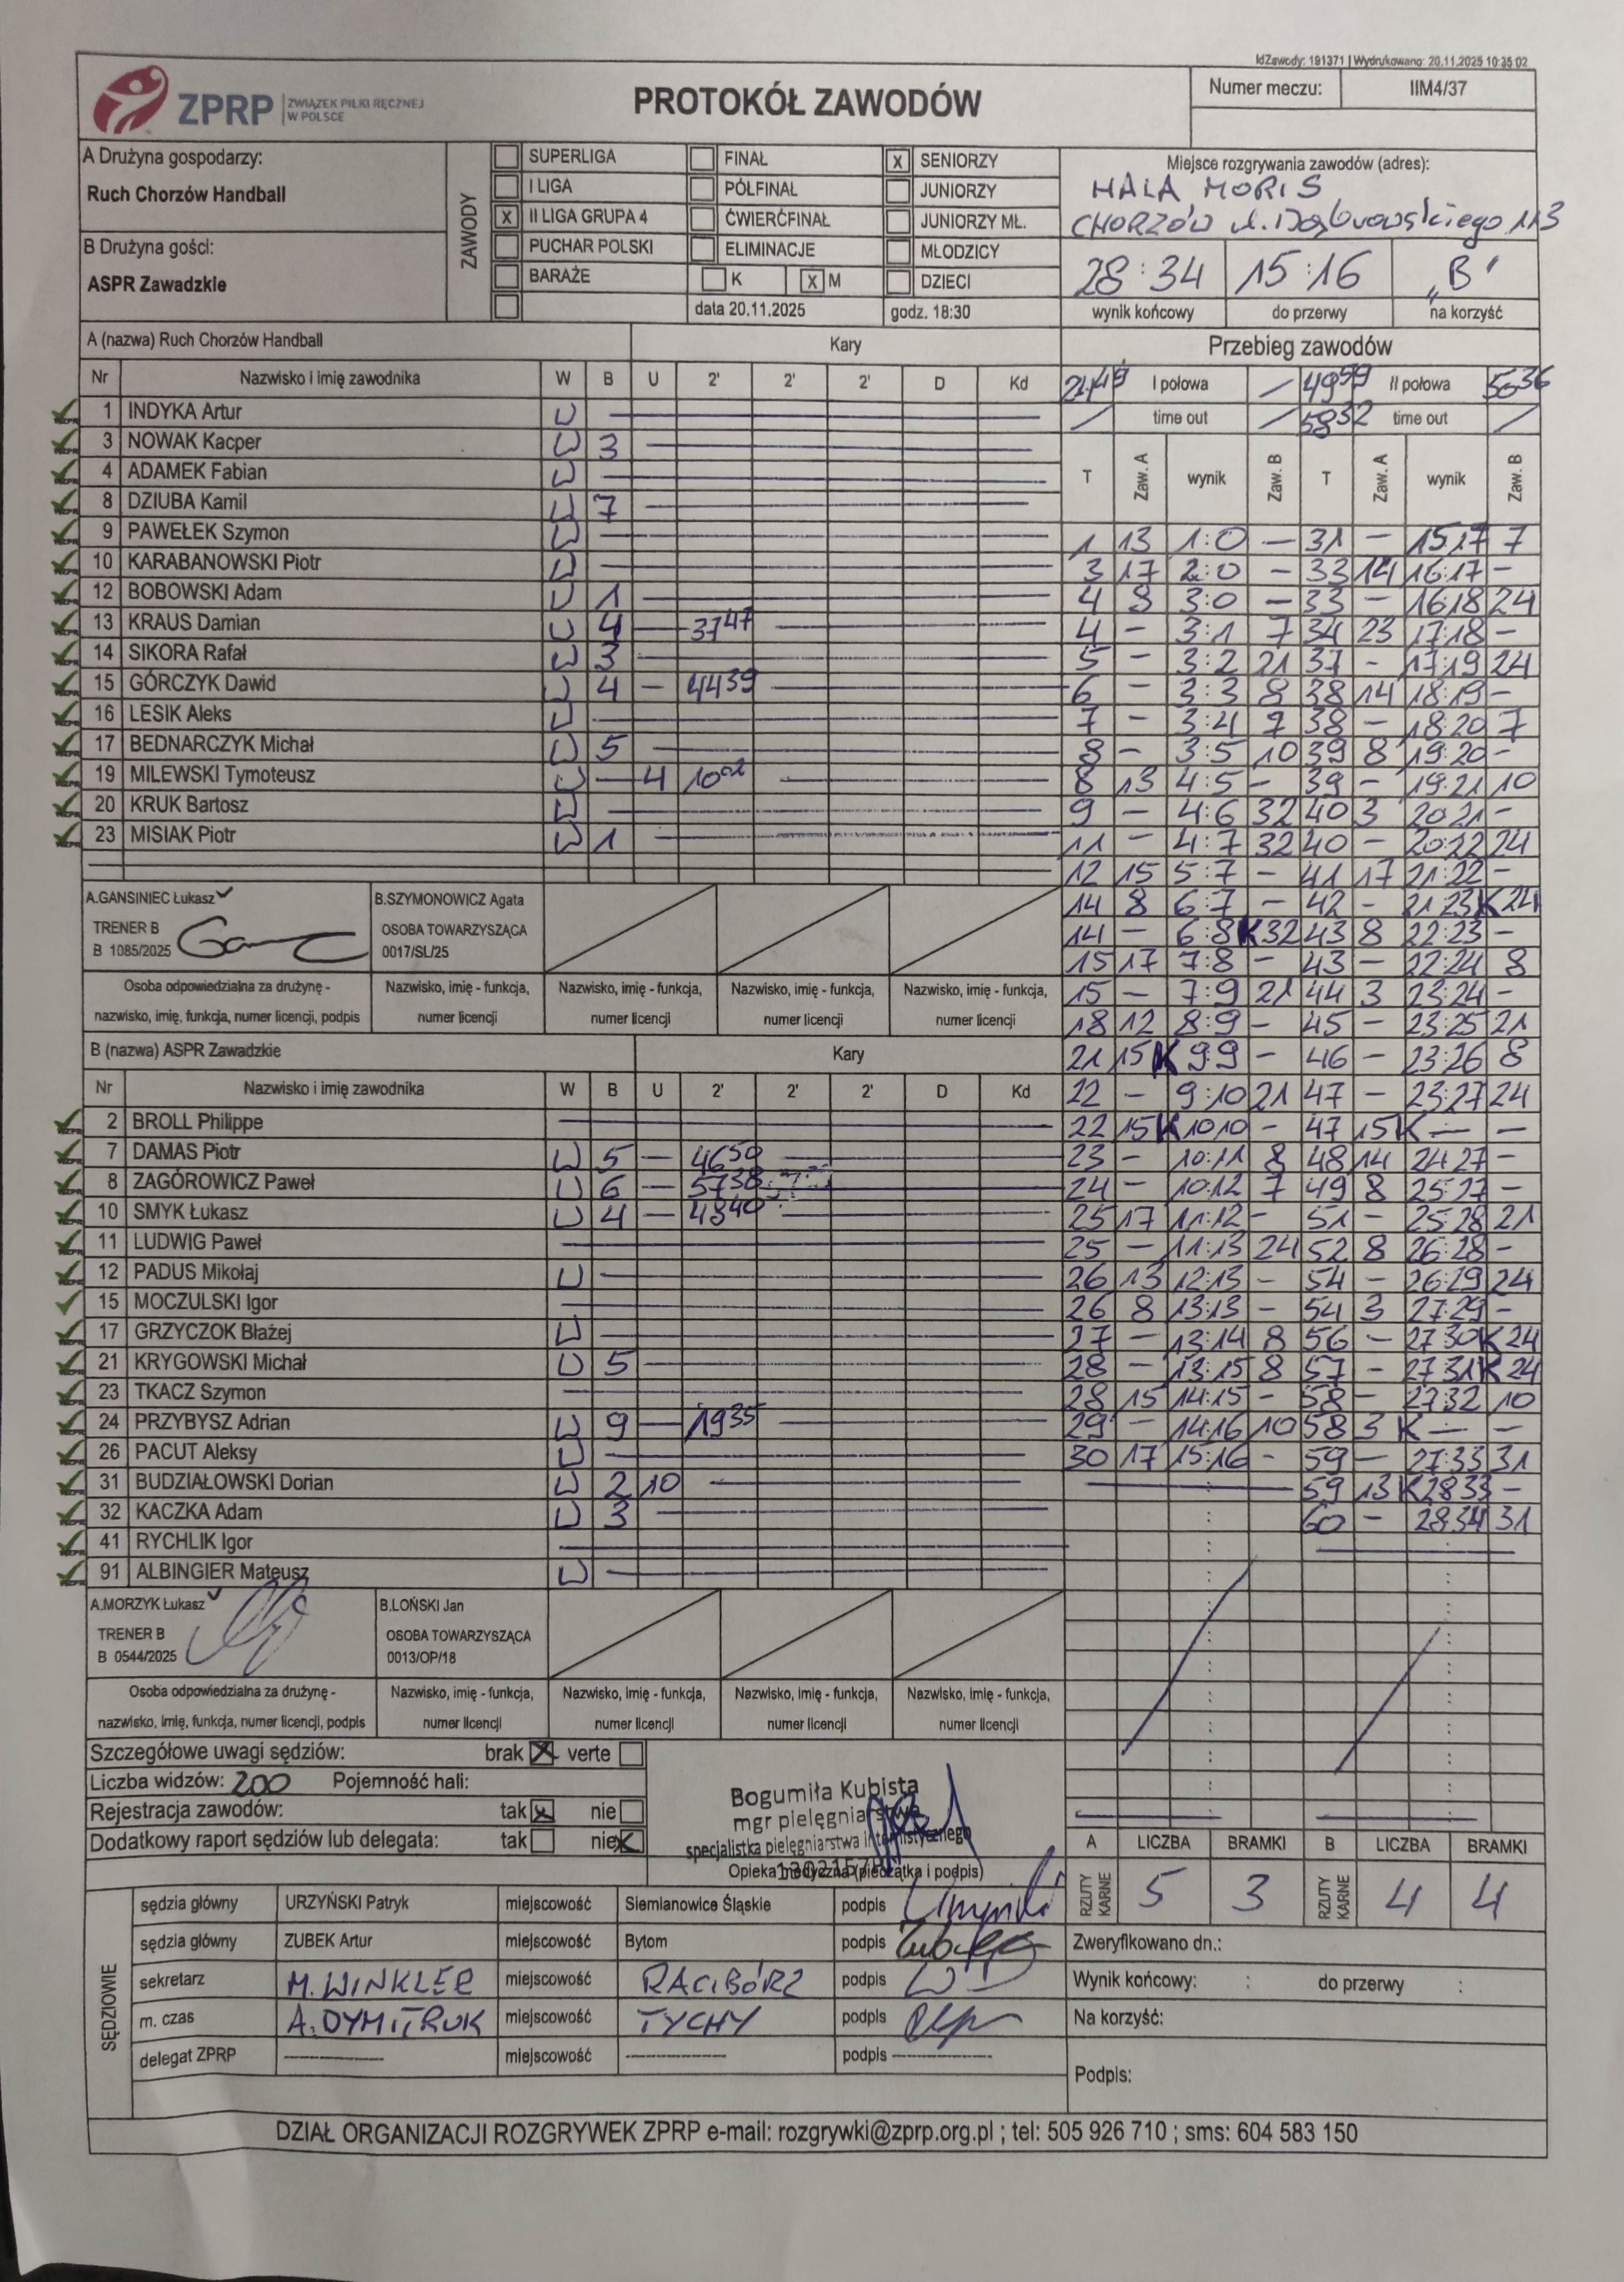 IdZawody: 191371 | Wydrukowano: 20.11.2025 10:35:02
ZPRP ZWIĄZEK PIŁKI RĘCZNEJ W POLSCE
PROTOKÓŁ ZAWODÓW
Numer meczu: IIM4/37
A Drużyna gospodarzy:
Ruch Chorzów Handball
B Drużyna gości:
ASPR Zawadzkie
ZAWODY
SUPERLIGA FINAŁ X SENIORZY
I LIGA PÓŁFINAŁ JUNIORZY
X II LIGA GRUPA 4 ĆWIERĆFINAŁ JUNIORZY MŁ.
PUCHAR POLSKI ELIMINACJE MŁODZICY
BARAŻE K X M DZIECI
data 20.11.2025 godz. 18:30
Miejsce rozgrywania zawodów (adres):
HALA MORIS
CHORZÓW ul. Dąbrowskiego 113
28:34 15:16 „B"
wynik końcowy do przerwy na korzyść
A (nazwa) Ruch Chorzów Handball Kary
Nr Nazwisko i imię zawodnika W B U 2' 2' 2' D Kd
1 INDYKA Artur W
3 NOWAK Kacper W 3
4 ADAMEK Fabian W
8 DZIUBA Kamil W 7
9 PAWEŁEK Szymon W
10 KARABANOWSKI Piotr W
12 BOBOWSKI Adam W 1
13 KRAUS Damian W 4 — 37 47
14 SIKORA Rafał W 3
15 GÓRCZYK Dawid W 4 — 44 39
16 LESIK Aleks W
17 BEDNARCZYK Michał W 5
19 MILEWSKI Tymoteusz W — 4 10 02
20 KRUK Bartosz W
23 MISIAK Piotr W 1
A.GANSINIEC Łukasz
TRENER B
B 1085/2025
B.SZYMONOWICZ Agata
OSOBA TOWARZYSZĄCA
0017/SL/25
Osoba odpowiedzialna za drużynę - nazwisko, imię, funkcja, numer licencji, podpis
Nazwisko, imię - funkcja, numer licencji
Nazwisko, imię - funkcja, numer licencji
Nazwisko, imię - funkcja, numer licencji
Nazwisko, imię - funkcja, numer licencji
B (nazwa) ASPR Zawadzkie Kary
Nr Nazwisko i imię zawodnika W B U 2' 2' 2' D Kd
2 BROLL Philippe
7 DAMAS Piotr W 5 — 46 50
8 ZAGÓROWICZ Paweł W 6 — 57 38
10 SMYK Łukasz W 4 — 48 40
11 LUDWIG Paweł
12 PADUS Mikołaj W
15 MOCZULSKI Igor
17 GRZYCZOK Błażej W
21 KRYGOWSKI Michał W 5
23 TKACZ Szymon
24 PRZYBYSZ Adrian W 9 — 19 35
26 PACUT Aleksy W
31 BUDZIAŁOWSKI Dorian W 2 10
32 KACZKA Adam W 3
41 RYCHLIK Igor
91 ALBINGIER Mateusz W
A.MORZYK Łukasz
TRENER B
B 0544/2025
B.LOŃSKI Jan
OSOBA TOWARZYSZĄCA
0013/OP/18
Osoba odpowiedzialna za drużynę - nazwisko, imię, funkcja, numer licencji, podpis
Nazwisko, imię - funkcja, numer licencji
Nazwisko, imię - funkcja, numer licencji
Nazwisko, imię - funkcja, numer licencji
Nazwisko, imię - funkcja, numer licencji
Przebieg zawodów
I połowa / 49 59 II połowa
/ time out / 58 32 time out /
T Zaw. A wynik Zaw. B T Zaw. A wynik Zaw. B
1 13 1:0 — 31 — 15:17 7
3 17 2:0 — 33 14 16:17 —
4 8 3:0 — 33 — 16:18 24
4 — 3:1 7 34 23 17:18 —
5 — 3:2 21 37 — 17:19 24
6 — 3:3 8 38 14 18:19 —
7 — 3:4 7 38 — 18:20 7
8 — 3:5 10 39 8 19:20 —
8 13 4:5 — 39 — 19:21 10
9 — 4:6 32 40 3 20:21 —
11 — 4:7 32 40 — 20:22 24
12 15 5:7 — 41 17 21:22 —
14 8 6:7 — 42 — 21:23 K 24
14 — 6:8 K 32 43 8 22:23 —
15 17 7:8 — 43 — 22:24 8
15 — 7:9 21 44 3 23:24 —
18 12 8:9 — 45 — 23:25 21
21 15 K 9:9 — 46 — 23:26 8
22 — 9:10 21 47 — 23:27 24
22 15 K 10:10 — 47 15 K — —
23 — 10:11 8 48 14 24:27 —
24 — 10:12 7 49 8 25:27 —
25 17 11:12 — 51 — 25:28 21
25 — 11:13 24 52 8 26:28 —
26 13 12:13 — 54 — 26:29 24
26 8 13:13 — 54 3 27:29 —
27 — 13:14 8 56 — 27:30 K 24
28 — 13:15 8 57 — 27:31 K 24
28 15 14:15 — 58 — 27:32 10
29 — 14:16 10 58 3 K — —
30 17 15:16 — 59 — 27:33 31
59 13 K 28:33 —
60 — 28:34 31
Szczegółowe uwagi sędziów: brak X verte
Liczba widzów: 200 Pojemność hali:
Rejestracja zawodów: tak X nie
Dodatkowy raport sędziów lub delegata: tak nie X
Bogumiła Kubista
mgr pielęgniarstwa
specjalistka pielęgniarstwa internistycznego
Opieka medyczna (pieczątka i podpis)
A LICZBA BRAMKI B LICZBA BRAMKI
RZUTY KARNE 5 3 RZUTY KARNE 4 4
SĘDZIOWIE
sędzia główny URZYŃSKI Patryk miejscowość Siemianowice Śląskie podpis
sędzia główny ZUBEK Artur miejscowość Bytom podpis
sekretarz M. WINKLER miejscowość RACIBÓRZ podpis
m. czas A. DYMITRUK miejscowość TYCHY podpis
delegat ZPRP miejscowość podpis
Zweryfikowano dn.:
Wynik końcowy: : do przerwy :
Na korzyść:
Podpis:
DZIAŁ ORGANIZACJI ROZGRYWEK ZPRP e-mail: rozgrywki@zprp.org.pl ; tel: 505 926 710 ; sms: 604 583 150